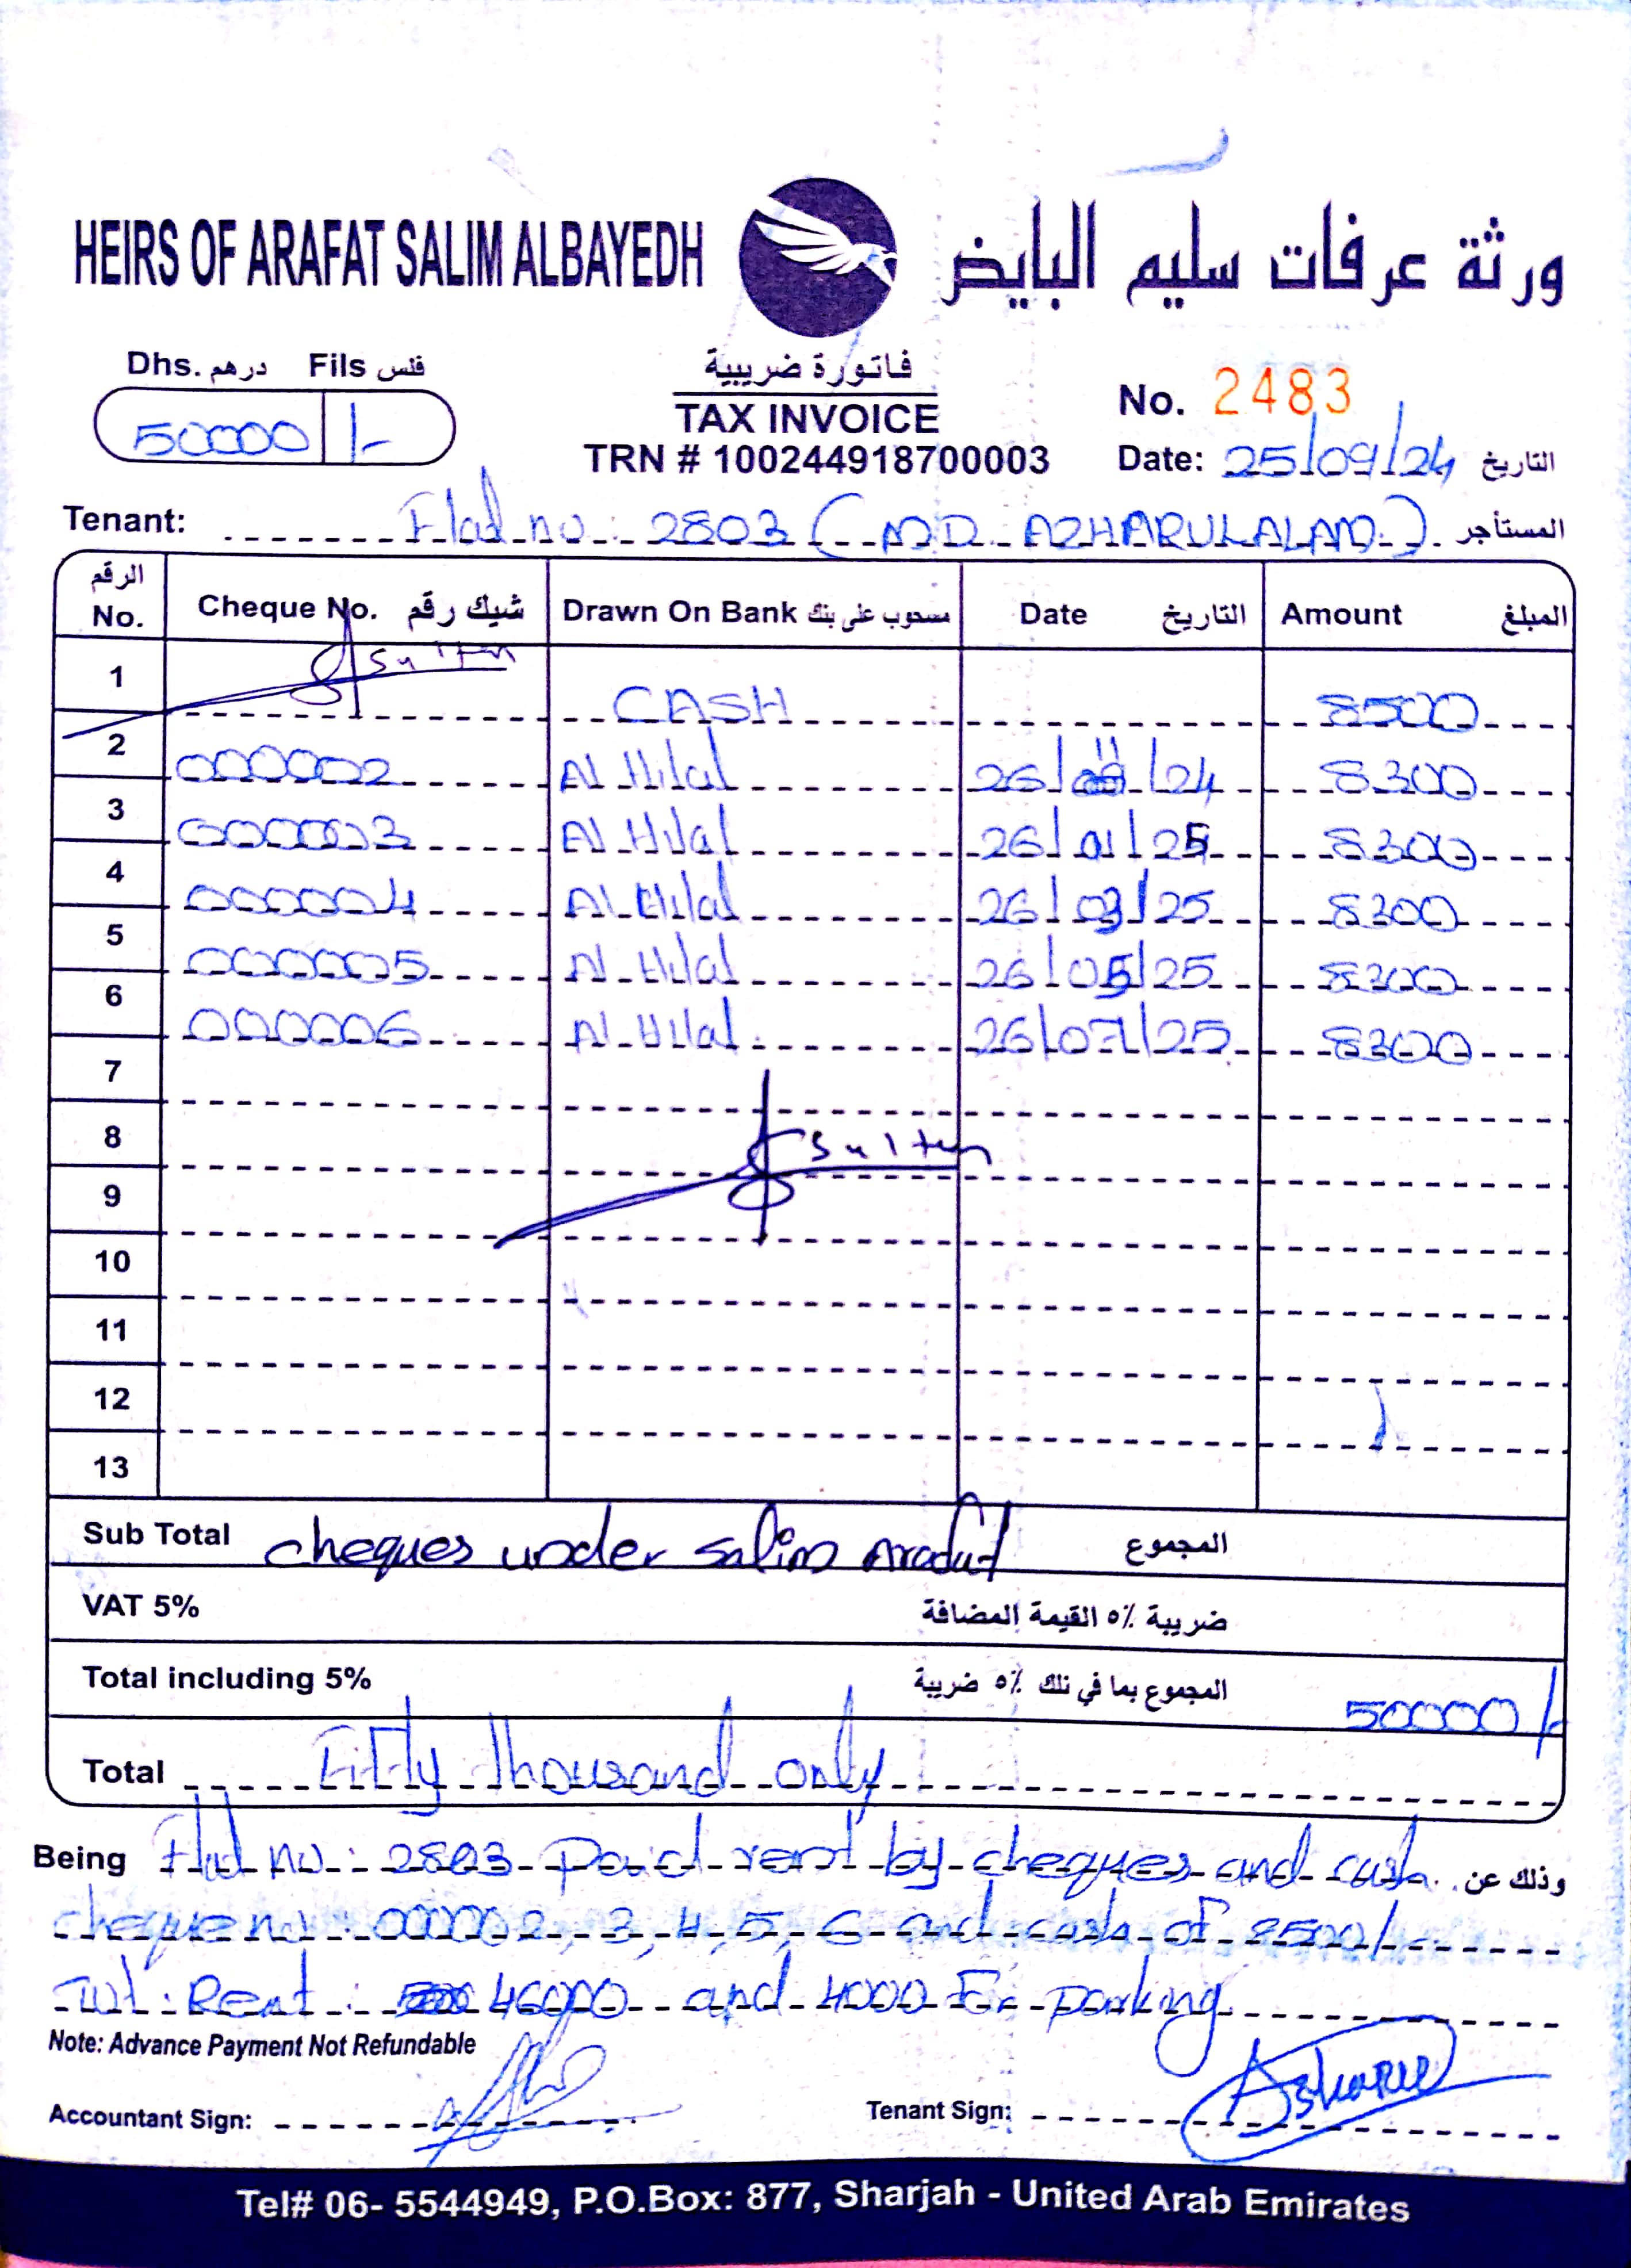 HEIRS OF ARAFAT SALIM ALBAYEDH ورثة عرفات سليم البايض
Dhs. درهم Fils فلس
50000 /-
فاتورة ضريبية
TAX INVOICE
TRN # 100244918700003
No. 2483
Date: 25/09/24 التاريخ
Tenant: Flat no: 2803 (MD AZHARUL ALAM) المستأجر
الرقم No. Cheque No. شيك رقم Drawn On Bank مسحوب على بنك Date التاريخ Amount المبلغ
1 Sultan CASH 8500
2 000002 Al Hilal 26/11/24 8300
3 000003 Al Hilal 26/01/25 8300
4 000004 Al Hilal 26/03/25 8300
5 000005 Al Hilal 26/05/25 8300
6 000006 Al Hilal 26/07/25 8300
7
8 Sultan
9
10
11
12
13
Sub Total cheques under Salim Arafat المجموع
VAT 5% ضريبة ٥٪ القيمة المضافة
Total including 5% المجموع بما في تلك ٥٪ ضريبة 50000/-
Total Fifty thousand only
Being Flat no: 2803 paid rent by cheques and cash وذلك عن
cheque no: 000002, 3, 4, 5, 6 and cash of 8500/-
Rent: 46000 and 4000 For parking
Note: Advance Payment Not Refundable
Accountant Sign: Tenant Sign: Azharul
Tel# 06- 5544949, P.O.Box: 877, Sharjah - United Arab Emirates